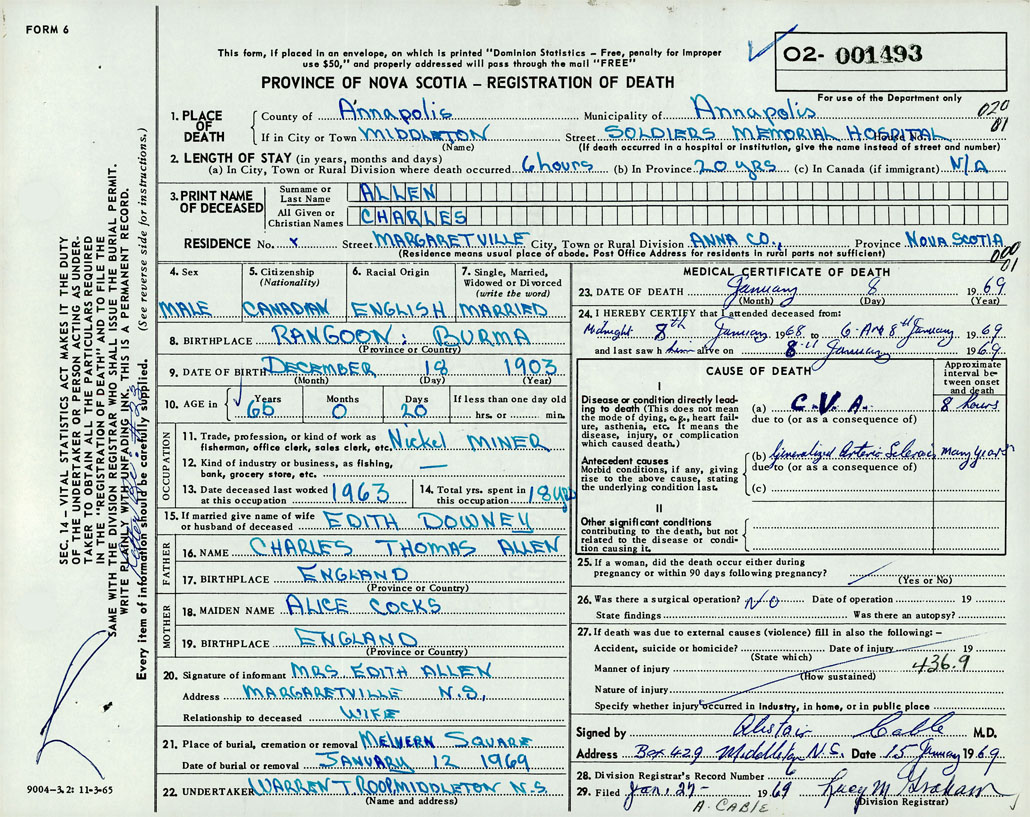 FORM 6
This form, if placed in an envelope, on which is printed "Dominion Statistics – Free, penalty for improper
use $50," and properly addressed will pass through the mail "FREE"
PROVINCE OF NOVA SCOTIA – REGISTRATION OF DEATH
02- 001493
For use of the Department only
020
01
1. PLACE OF DEATH
County of Annapolis Municipality of Annapolis
If in City or Town MIDDLETON Street SOLDIERS MEMORIAL HOSPITAL
(Name) (If death occurred in a hospital or institution, give the name instead of street and number)
2. LENGTH OF STAY (in years, months and days)
(a) In City, Town or Rural Division where death occurred 6 hours (b) In Province 20 yrs (c) In Canada (if immigrant) N/A
3. PRINT NAME OF DECEASED
Surname or Last Name ALLEN
All Given or Christian Names CHARLES
RESIDENCE No. x Street MARGARETVILLE City, Town or Rural Division ANNA CO., Province NOVA SCOTIA
(Residence means usual place of abode. Post Office Address for residents in rural parts not sufficient)
000
01
4. Sex MALE
5. Citizenship (Nationality) CANADIAN
6. Racial Origin ENGLISH
7. Single, Married, Widowed or Divorced (write the word) MARRIED
8. BIRTHPLACE RANGOON: BURMA
(Province or Country)
9. DATE OF BIRTH DECEMBER 18 1903
(Month) (Day) (Year)
10. AGE in Years 65 Months 0 Days 20 If less than one day old hrs. or min.
OCCUPATION
11. Trade, profession, or kind of work as fisherman, office clerk, sales clerk, etc. Nickel MINER
12. Kind of industry or business, as fishing, bank, grocery store, etc. —
13. Date deceased last worked at this occupation 1963
14. Total yrs. spent in this occupation 18 yrs
15. If married give name of wife or husband of deceased EDITH DOWNEY
FATHER
16. NAME CHARLES THOMAS ALLEN
17. BIRTHPLACE ENGLAND
(Province or Country)
MOTHER
18. MAIDEN NAME ALICE COCKS
19. BIRTHPLACE ENGLAND
(Province or Country)
20. Signature of informant MRS. EDITH ALLEN
Address MARGARETVILLE N.S,
Relationship to deceased WIFE
21. Place of burial, cremation or removal MELVERN SQUARE
Date of burial or removal JANUARY 12 1969
22. UNDERTAKER WARREN T. ROOP, MIDDLETON N.S
(Name and address)
MEDICAL CERTIFICATE OF DEATH
23. DATE OF DEATH January 8 1969
(Month) (Day) (Year)
24. I HEREBY CERTIFY that I attended deceased from:
Midnight 8th January 1968 to 6 AM 8th January 1969
and last saw him alive on 8th January 1969
CAUSE OF DEATH
Approximate interval between onset and death
I
Disease or condition directly leading to death (This does not mean the mode of dying, e.g., heart failure, asthenia, etc. It means the disease, injury, or complication which caused death.)
(a) C.V.A. 8 hours
due to (or as a consequence of)
Antecedent causes
Morbid conditions, if any, giving rise to the above cause, stating the underlying condition last.
(b) Generalized Arterio Sclerosis many years
due to (or as a consequence of)
(c)
II
Other significant conditions contributing to the death, but not related to the disease or condition causing it.
25. If a woman, did the death occur either during pregnancy or within 90 days following pregnancy?
(Yes or No)
26. Was there a surgical operation? NO Date of operation 19
State findings Was there an autopsy?
27. If death was due to external causes (violence) fill in also the following: –
Accident, suicide or homicide? Date of injury 19
(State which)
Manner of injury 436.9
(How sustained)
Nature of injury
Specify whether injury occurred in industry, in home, or in public place
Signed by Alistair Cable M.D.
Address Box 429 Middleton N.S. Date 15 January 1969
28. Division Registrar's Record Number 6
29. Filed Jan. 27- 1969 Lucy M Graham
(Division Registrar)
A. CABLE
SEC. 14 – VITAL STATISTICS ACT MAKES IT THE DUTY
OF THE UNDERTAKER OR PERSON ACTING AS UNDER-
TAKER TO OBTAIN ALL THE PARTICULARS REQUIRED
IN THE "REGISTRATION OF DEATH" AND TO FILE THE
SAME WITH THE DIVISION REGISTRAR WHO SHALL ISSUE THE BURIAL PERMIT.
WRITE PLAINLY WITH UNFADING INK. THIS IS A PERMANENT RECORD.
Every item of information should be carefully supplied. (See reverse side for instructions.)
9004-3.2: 11-3-65